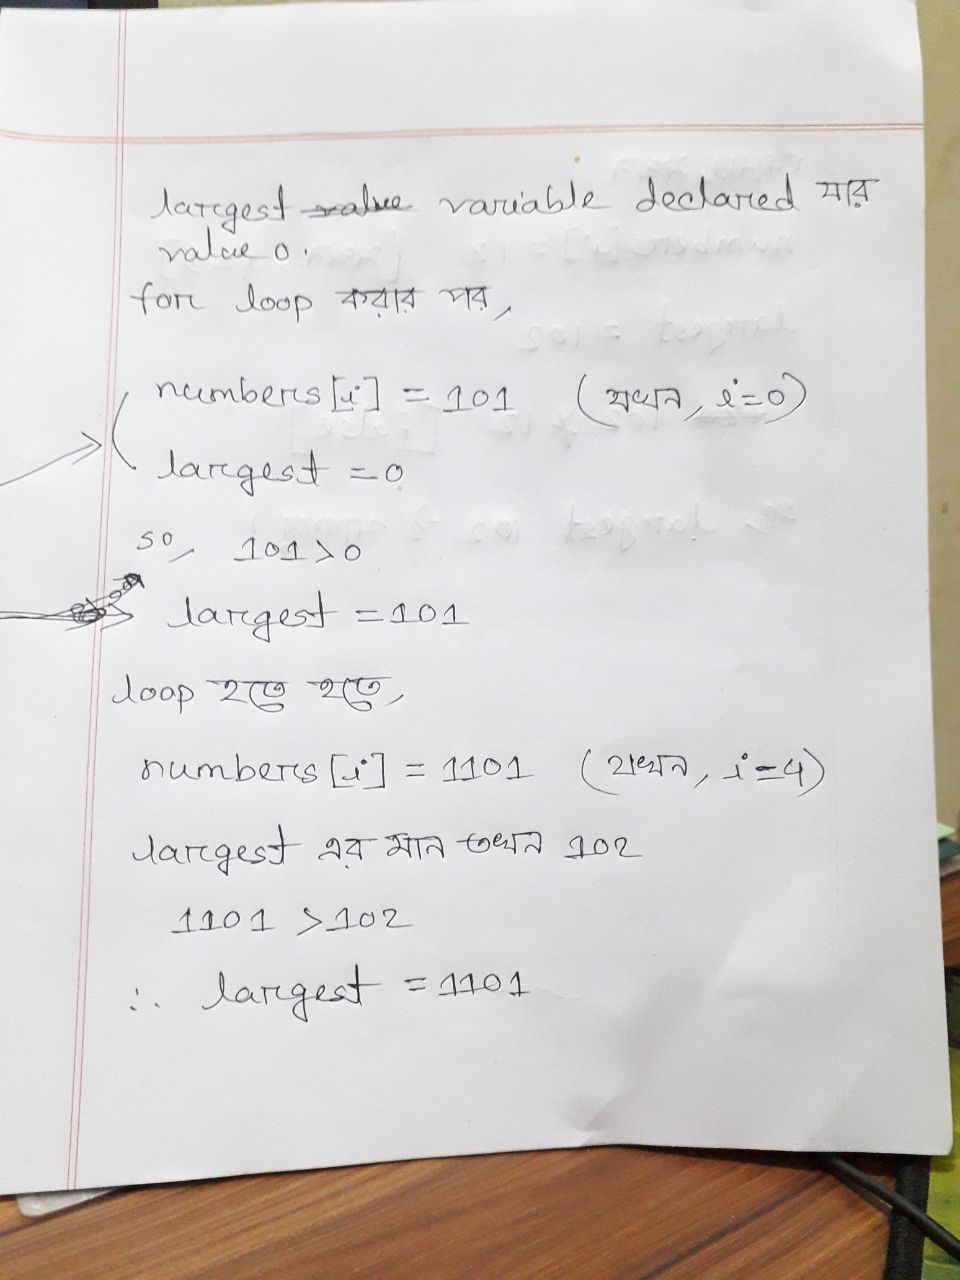 largest value variable declared যার
value 0.
for loop করার পর,
numbers[i] = 101 (যখন, i=0)
largest = 0
so, 101 > 0
largest = 101
loop হতে হতে,
numbers[i] = 1101 (যখন, i=4)
largest এর মান তখন 102
1101 > 102
∴ largest = 1101